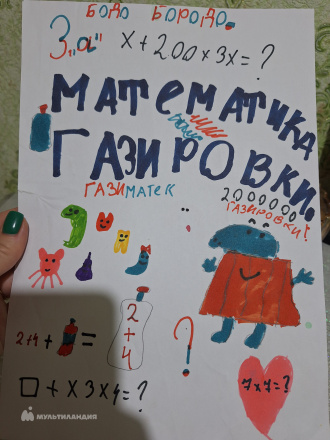 БОДО БОРОДО
3 „а" x + 200 x 3x = ?
МАТЕМАТИКА
ГАЗИРОВКИ.
ГАЗИМАТЕК
2000000
ГАЗИРОВКИ!
2+4 + =
2
+
4
?
7x7=?
□ + X 3 X 4 = ?
МУЛЬТИЛАНДИЯ